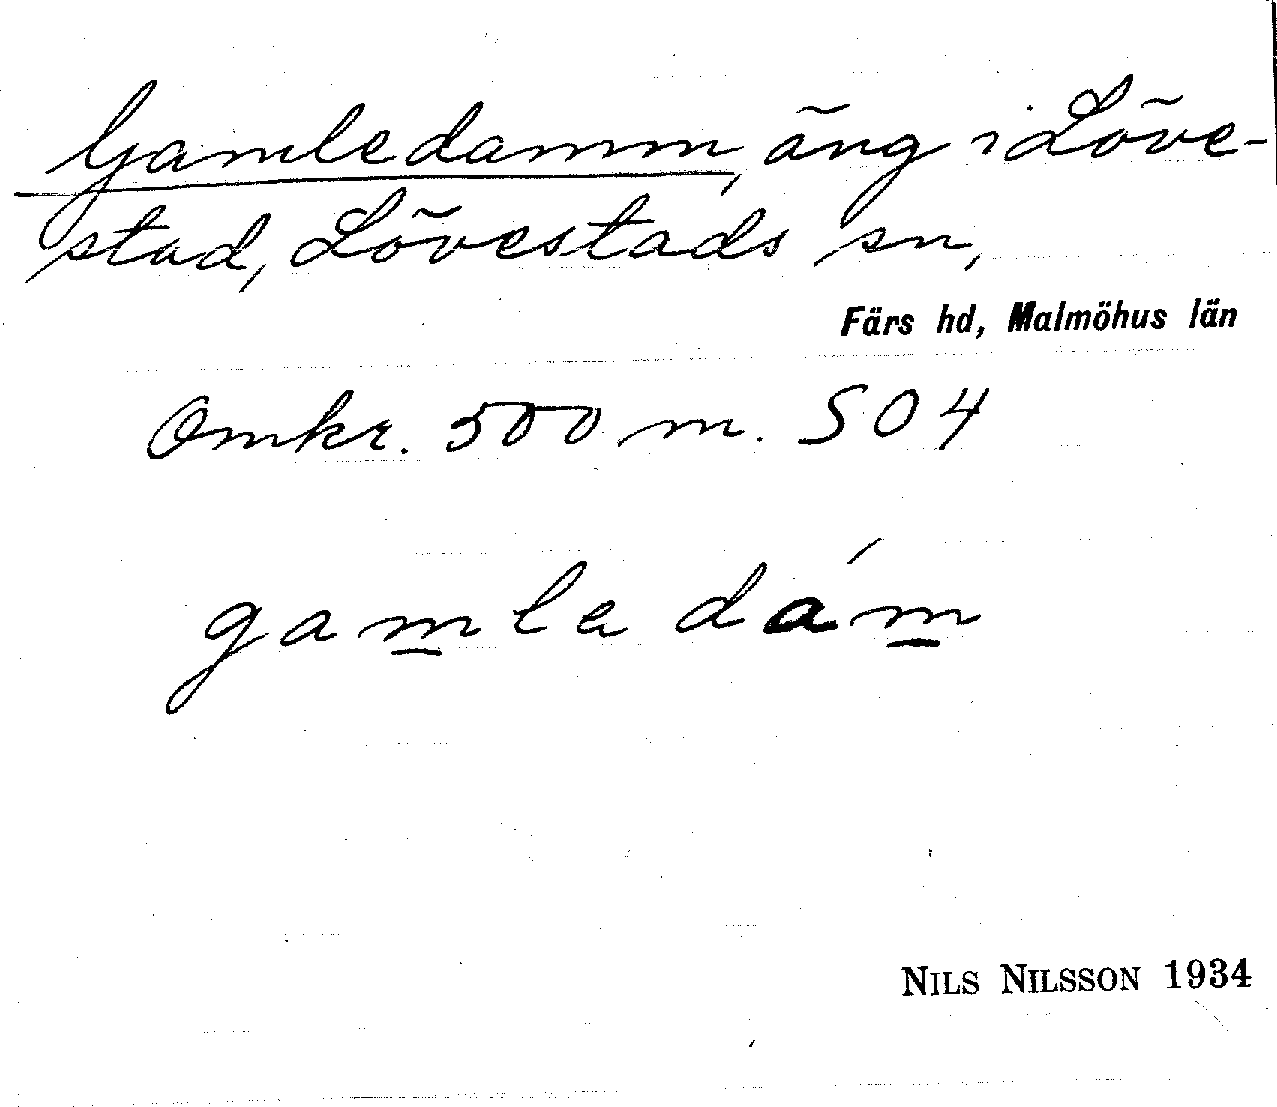 Gamledamm, äng i Löve-
stad, Lövestads sn,
Färs hd, Malmöhus län
Omkr. 500 m. SO 4
gamle dám
NILS NILSSON 1934